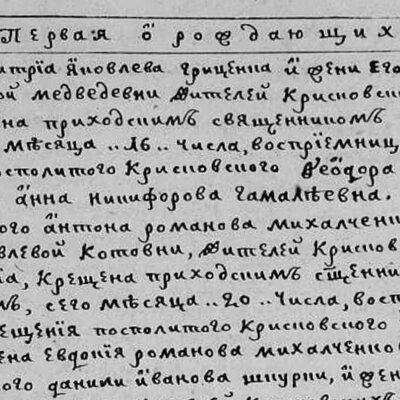 Первая ѡ рождающих
итрїа Яковлева Гриценка и жени Его
ой медведевни жителей Крисковск
на приходским священником
мѣсяца .. 16 .. числа, воспрїемниц
осполитого Крисковского Феѡдора
анна никифорова гамалѣевна.
ого антона романова михалченк
влевой Котовни, жителей Крисков
їа, Крещена приходским сщ҃енни
мъ, сего мѣсяца .. 20 .. числа, восп
ещенїя посполитого Крисковского
ена Евдокїя романова михалченков
ого данили иванова шкурки, и жен